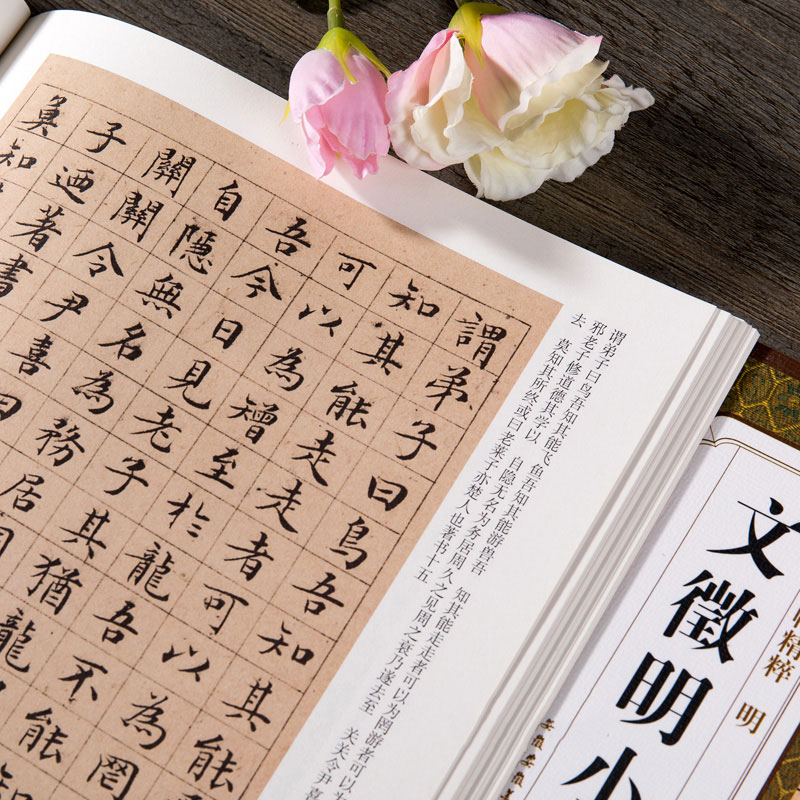 謂弟子曰鳥吾知其能
知其能走走者可以為罔
可以為矰至於龍吾不能知
吾今日見老子其猶龍
自隱無名為務居
關關令尹喜曰
子迺著書
莫知
谓弟子曰鸟吾知其能飞 鱼吾知其能游兽吾 知其能走走者可以为罔游者可以为
邪老子修道德其学以 自隐无名为务居周 久之见周之衰乃遂去至 关关令尹喜
去 莫知其所终或曰老莱子亦楚人也著书十五
精粹 明
文徵明小